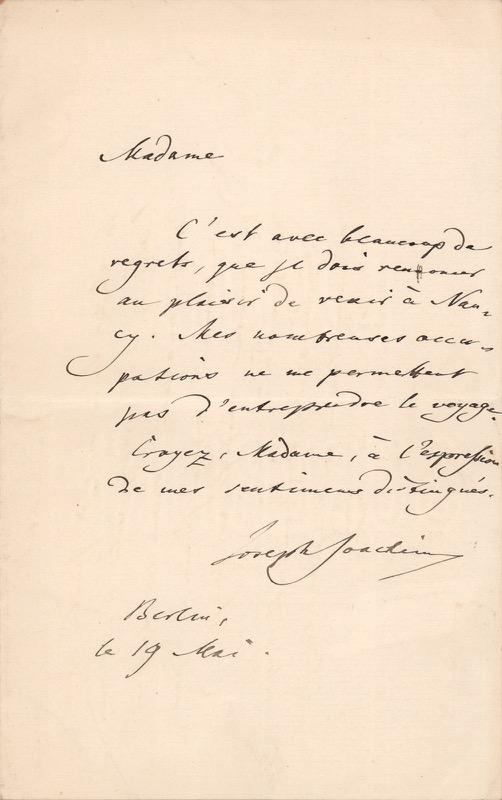 Madame
C'est avec beaucoup de
regrets, que je dois renoncer
au plaisir de venir à Nan-
cy. Mes nombreuses occu-
pations ne me permettent
pas d'entreprendre le voyage.
Croyez, Madame, à l'expression
de mes sentimens distingués.
Joseph Joachim
Berlin,
le 19 Mai.